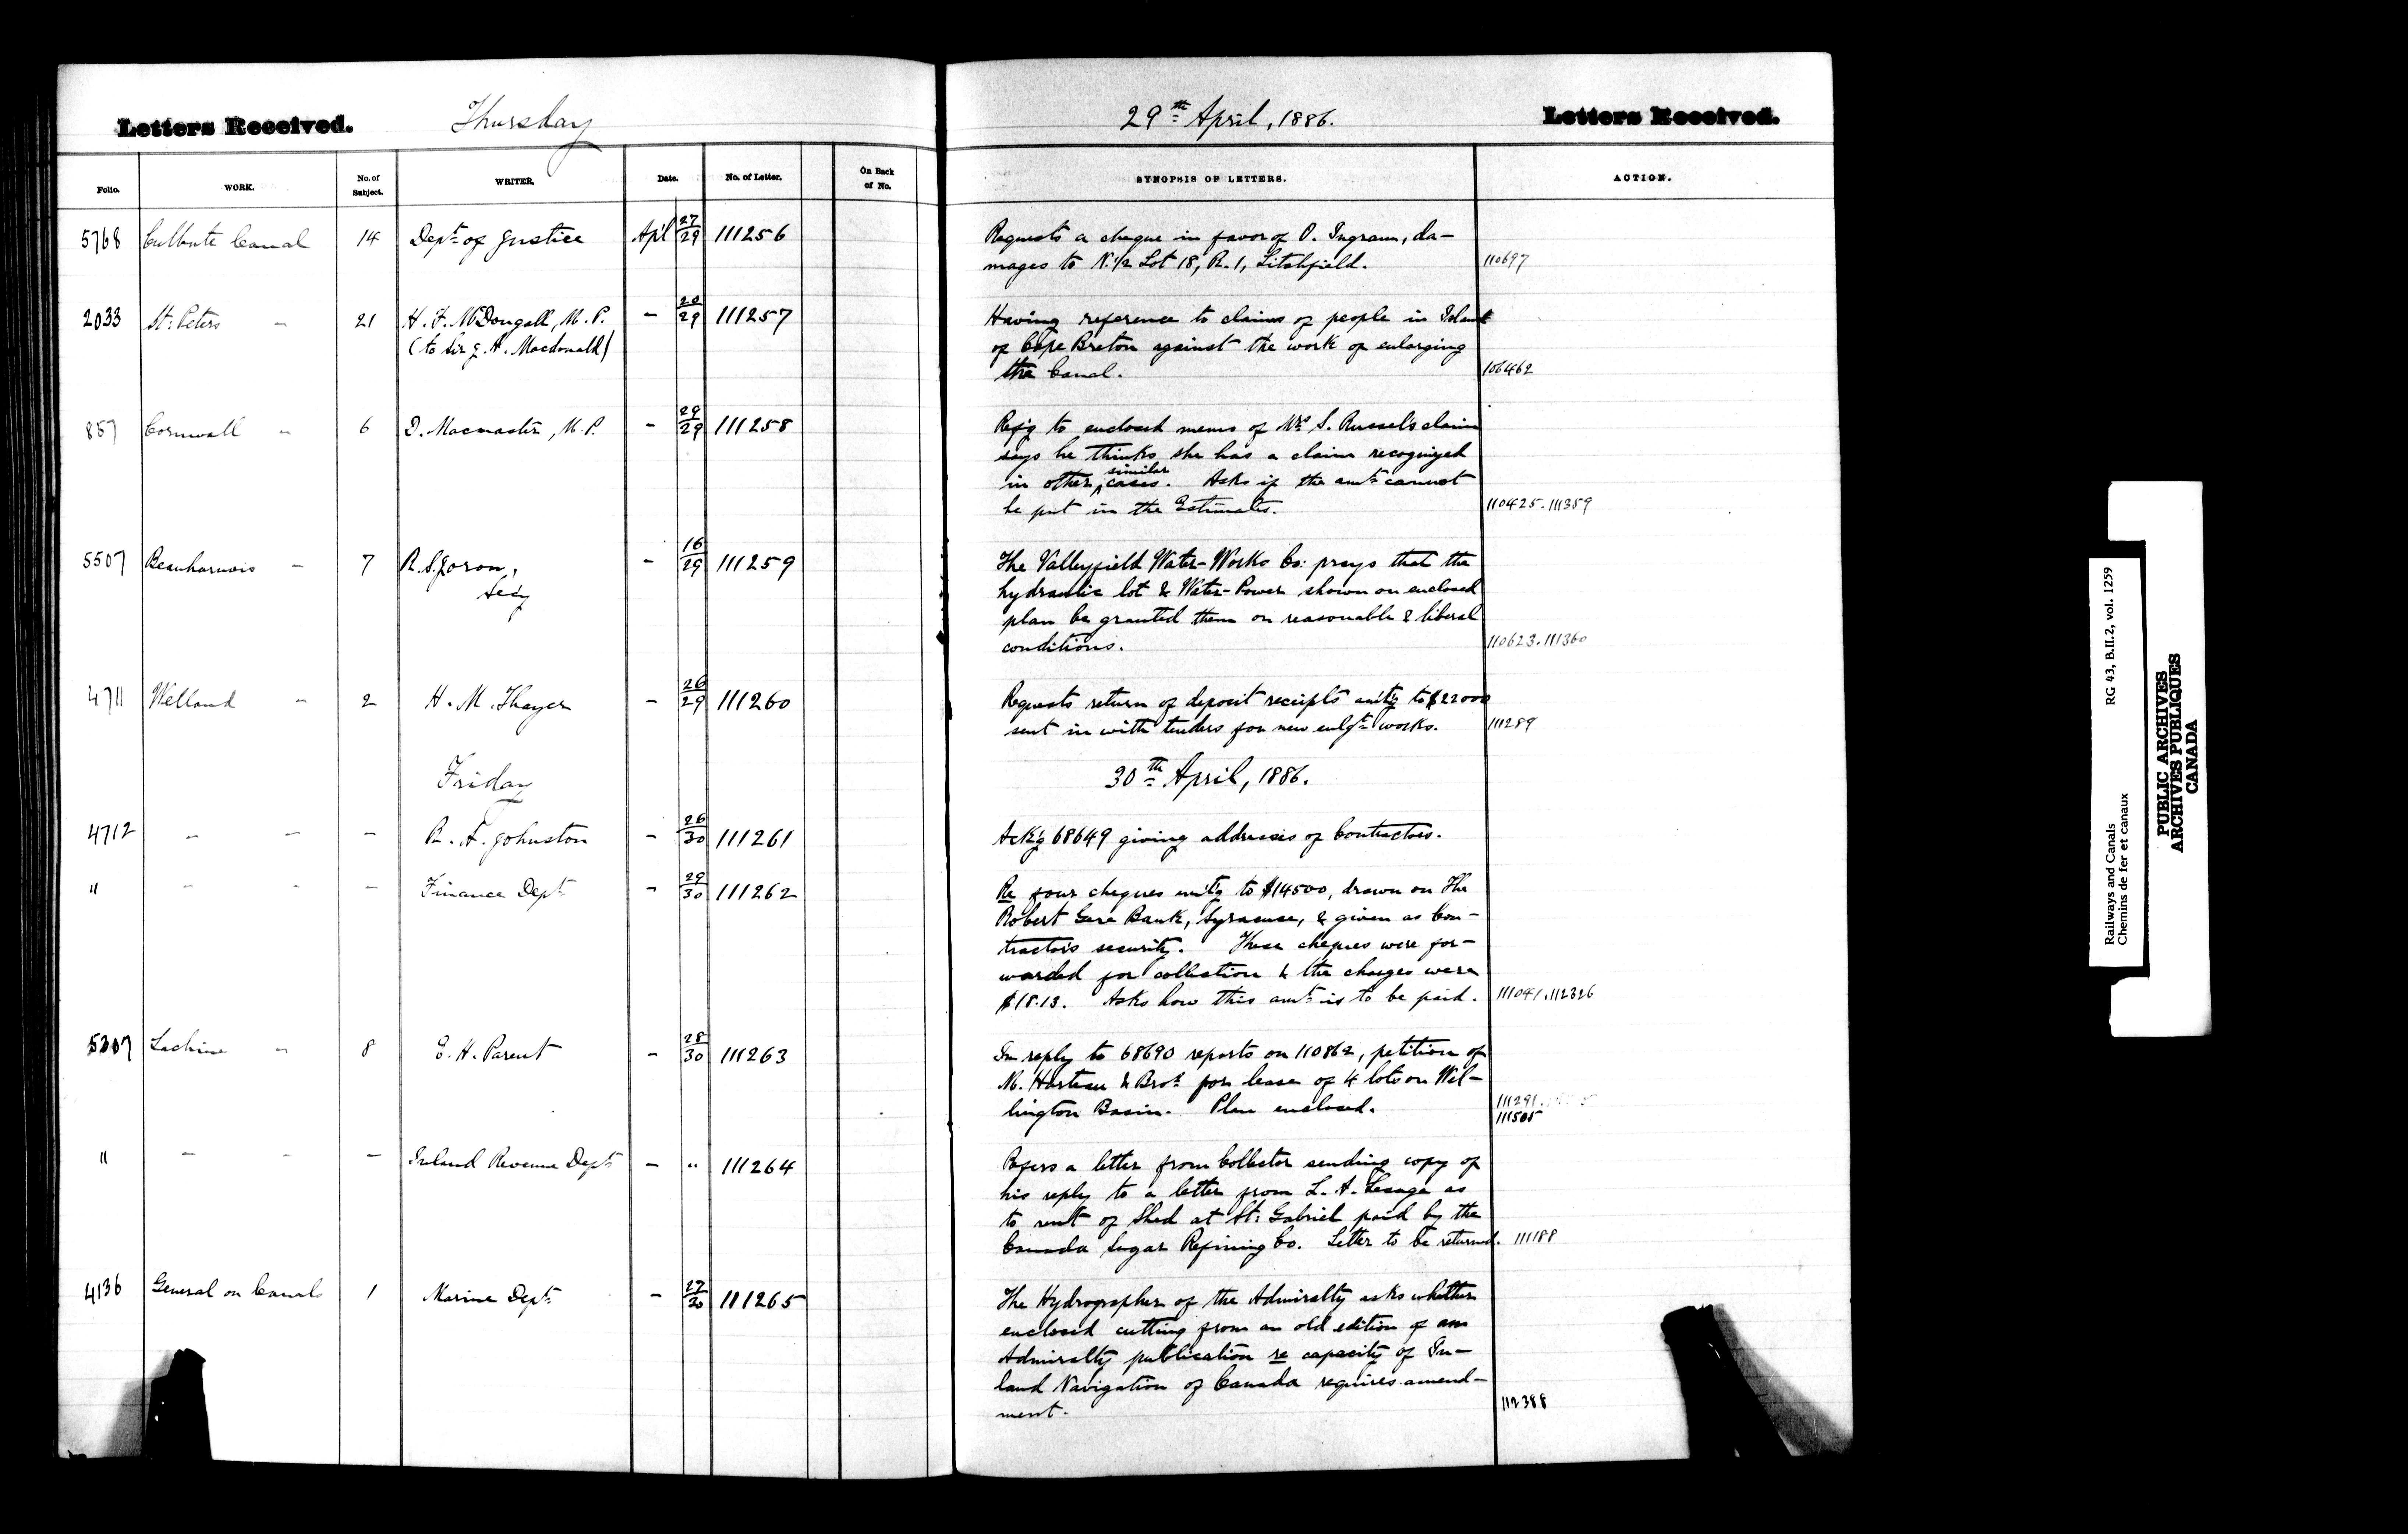 Letters Received.
Thursday
29th April, 1886.
Letters Received.
Folio. WORK. No. of Subject. WRITER. Date. No. of Letter. On Back of No. SYNOPSIS OF LETTERS. ACTION.
5768 Culbute Canal 14 Dept. of Justice Apl 27/29 111256
Requests a cheque in favor of O. Ingram, da-
mages to N. 1/2 Lot 18, R. 1, Litchfield. 110697
2033 St. Peters " 21 H. F. McDougall, M. P. - 20/29 111257
(to Sir J. A. Macdonald)
Having reference to claims of people in Island
of Cape Breton against the work of enlarging
the Canal. 106462
857 Cornwall " 6 D. Macmaster, M. P. - 29/29 111258
Ref'g to enclosed memo of Mrs S. Russels claim
says he thinks she has a claim recognized
in other similar cases. Asks if the amt. cannot
be put in the Estimates. 110425. 111359
5507 Beauharnois - 7 R. S. Joron, - 16/29 111259
Secy
The Valleyfield Water-Works Co: prays that the
hydraulic lot & Water-Power shown on enclosed
plan be granted them on reasonable & liberal
conditions. 110623. 111360
4711 Welland " 2 H. M. Thayer - 26/29 111260
Requests return of deposit receipts amt'g to $22000
sent in with tenders for new enlgt. works. 111289
Friday
30th April, 1886.
4712 - - - R. A. Johnston - 26/30 111261
Ack'g 68649 giving addresses of Contractors.
" - - - Finance Dept. - 29/30 111262
Re four cheques amt'g to $14500, drawn on The
Robert Gere Bank, Syracuse, & given as Con-
tractors security. These cheques were for-
warded for collection & the charges were
$18.13. Asks how this amt. is to be paid. 111041. 112326
5307 Lachine " 8 E. H. Parent - 28/30 111263
In reply to 68690 reports on 110862, petition of
M. Harteau & Bro. for lease of 4 lots on Wel-
lington Basin. Plan enclosed. 111291.
111505
" - - - Inland Revenue Dept. - " 111264
Refers a letter from Collector sending copy of
his reply to a letter from L. A. Lesage as
to rent of Shed at St. Gabriel paid by the
Canada Sugar Refining Co. Letter to be returned. 111188
4136 General on Canals 1 Marine Dept. - 27/30 111265
The Hydrographer of the Admiralty asks whether
enclosed cutting from an old edition of an
Admiralty publication re capacity of In-
land Navigation of Canada requires amend-
ment. 112388
Railways and Canals RG 43, B.II.2, vol. 1259
Chemins de fer et canaux
PUBLIC ARCHIVES
ARCHIVES PUBLIQUES
CANADA